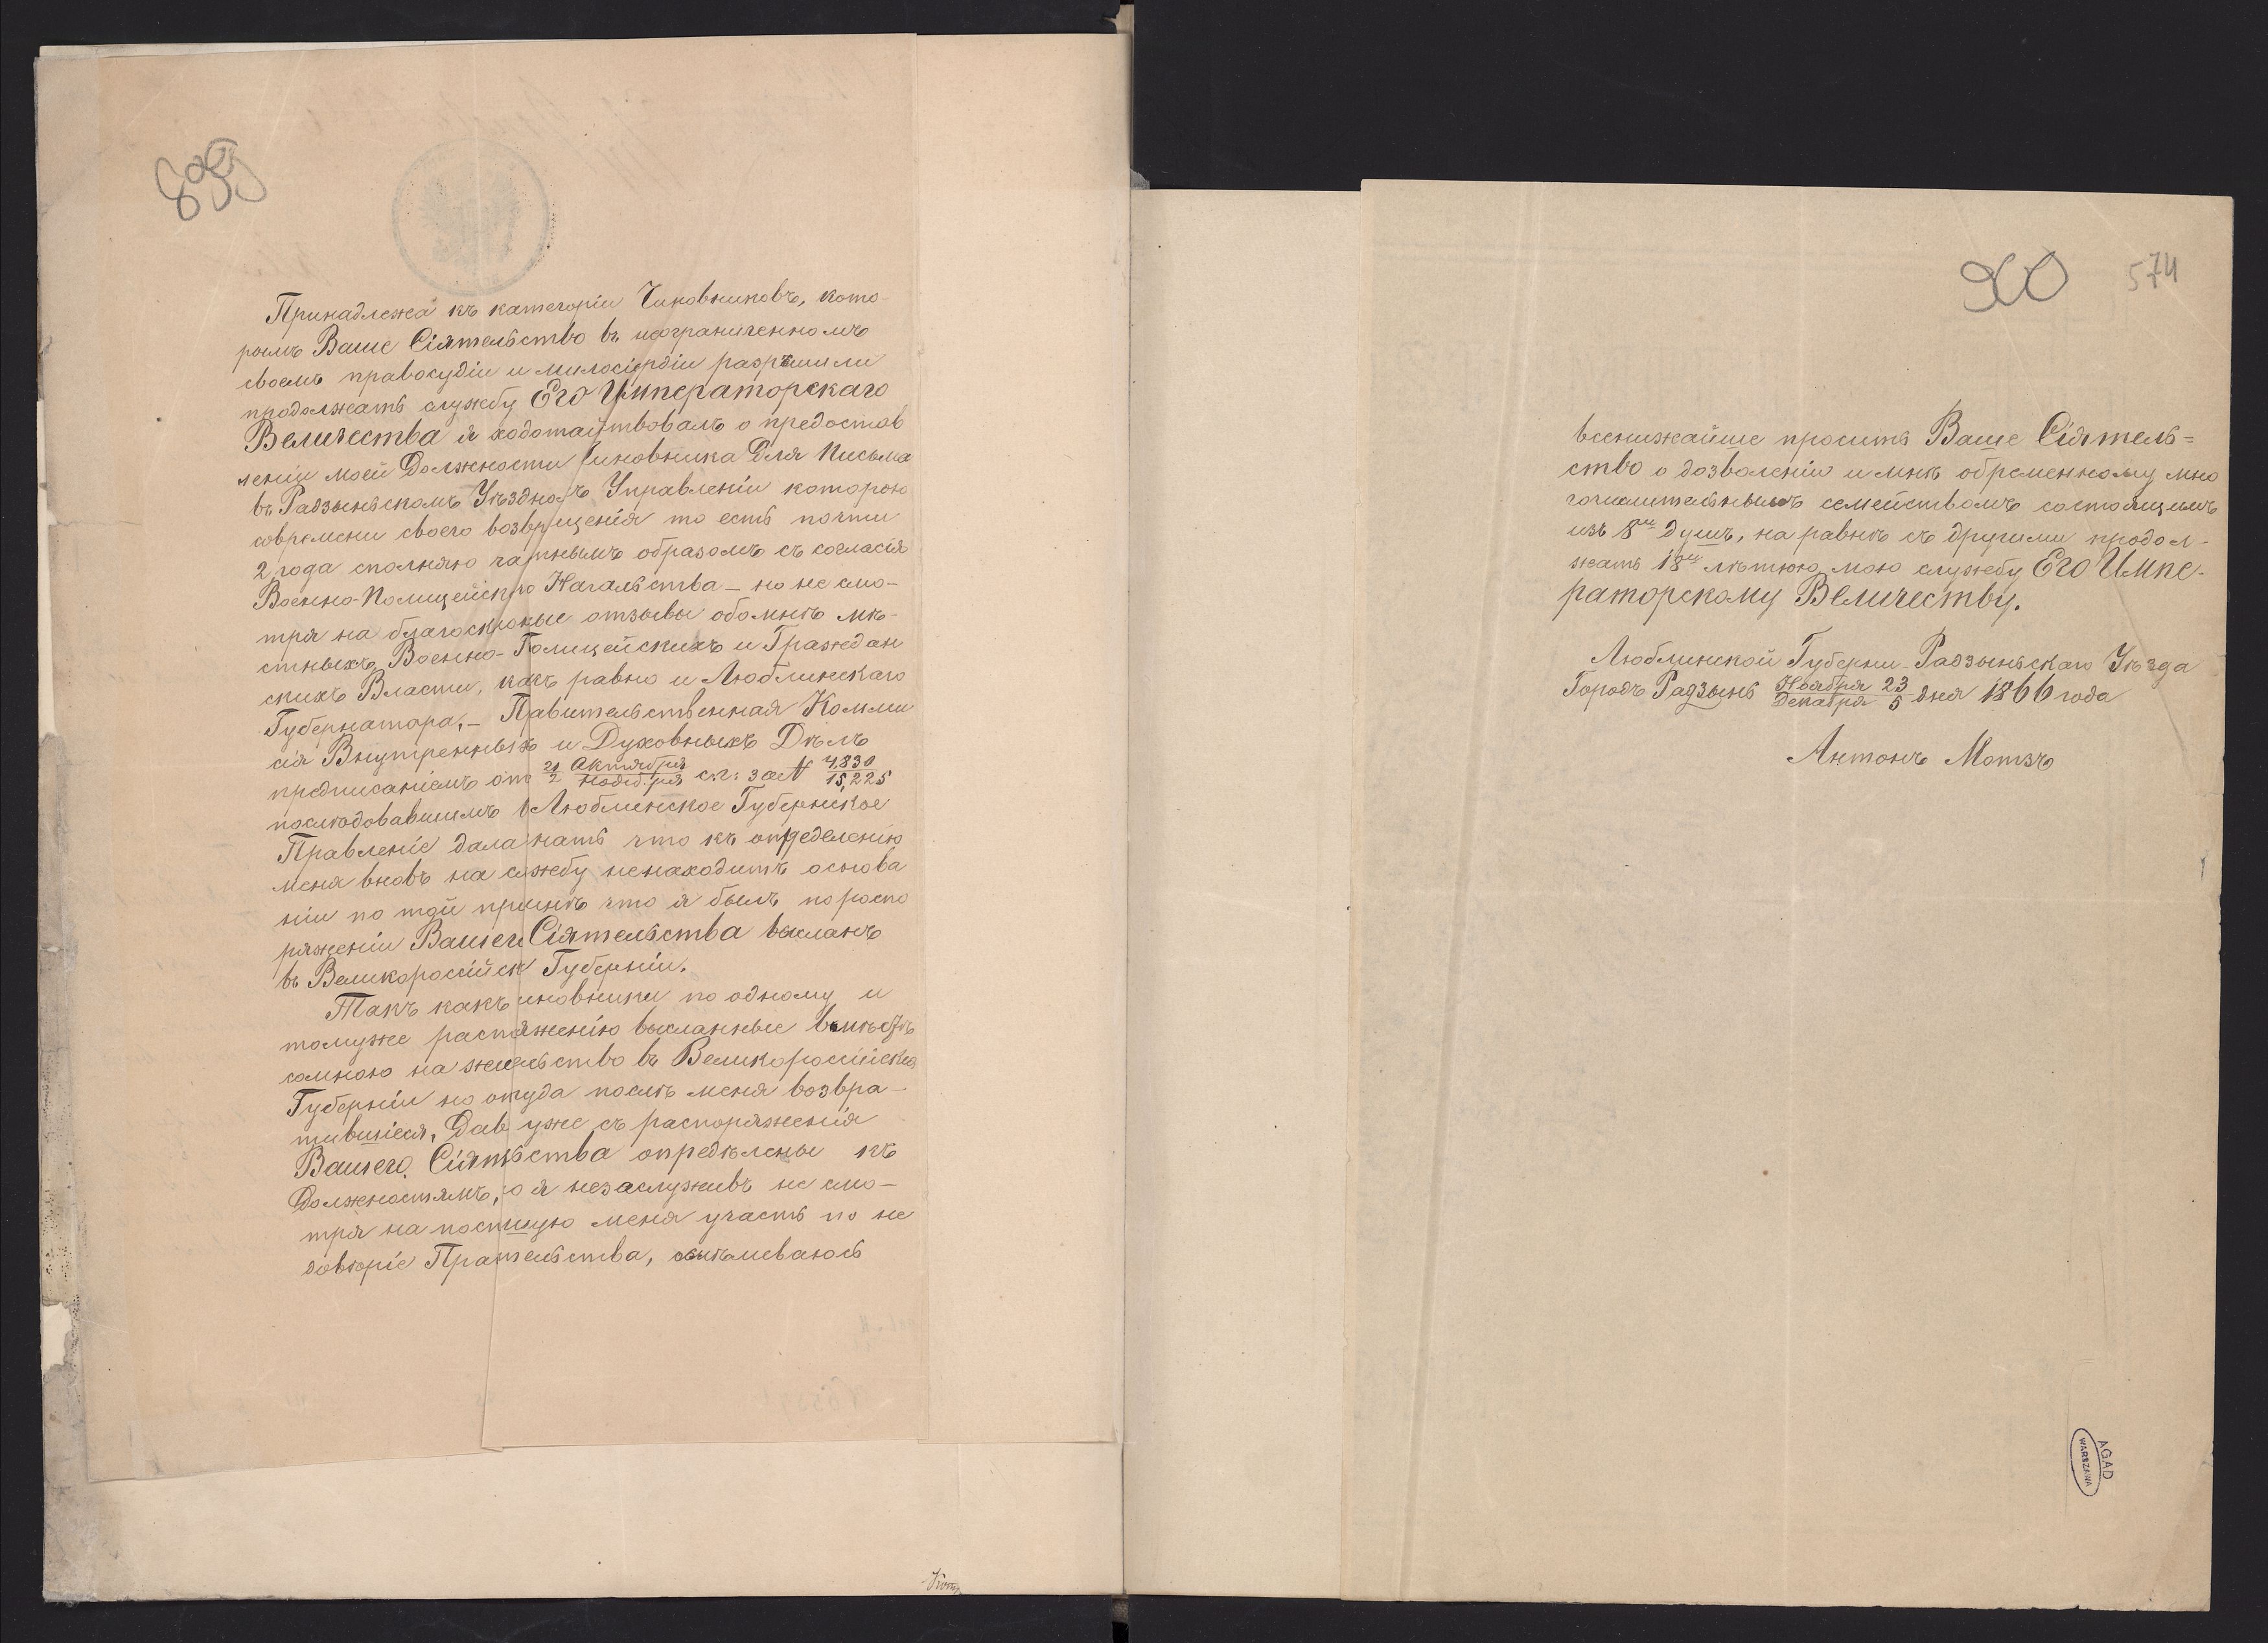 899
Принадлежа къ категоріи Чиновниковъ, кото-
рымъ Ваше Сіятельство въ неограниченномъ
своемъ правосудіи и милосердіи разрѣшили
продолжать службу Его Императорскаго
Величества я ходотайствовалъ о предостав
леніи моей Должности Чиновника Для Письма
въ Радзыньскомъ Уѣздномъ Управленіи которою
современи своего возвращенія то есть почти
2 года сполняю частнымъ образомъ съ согласія
Военно-Полицейскаго Начальства – но не смо-
тря на благосклонные отзывы обомнѣ мѣ-
стныхъ Военно-Полицейскихъ и Граждан
скихъ Власти, какъ равно и Люблинскаго
Губернатора, – Правительственная Комми
сія Внутреннихъ и Духовныхъ Дѣлъ
предписаніемъ отъ 21 Актября / 2 Ноября с.г: за N 4,830 / 15,225
послѣдовавшимъ въ Люблинское Губернское
Правленіе дала знать что къ определенію
меня вновъ на службу ненаходитъ основа
ніи по той причинѣ что я былъ по распо
ряженіи Вашего Сіятельства высланъ
въ Великороссійскія Губерніи.
Такъ какъ чиновники по одному и
томуже распоряженію высланные вмѣстѣ
сомною на жительство въ Великороссійскія
Губерніи но откуда послѣ меня возвра-
тившіеся, Давно уже съ распоряженія
Вашего Сіятельства опредѣлены къ
Должностямъ, то я незаслуживъ не смо-
тря на постигшую меня участь по не
довѣріе Правительства, осмѣливаюсь
900
574
всенижайше просить Ваше Сіятель=
ство о дозволеніи и мнѣ обременному мно
гочислительнымъ семействомъ состоящимъ
изъ 8ми душъ, на равнѣ съ другими продол-
жать 18ти лѣтнюю мою службу Его Импе-
раторскому Величеству.
Люблинской Губерни Радзыньскаго Уѣзда
Городъ Радзынь Ноября 23 / Декабря 5 дня 1866 года
Антонъ Мотзъ
AGAD
WARSZAWA